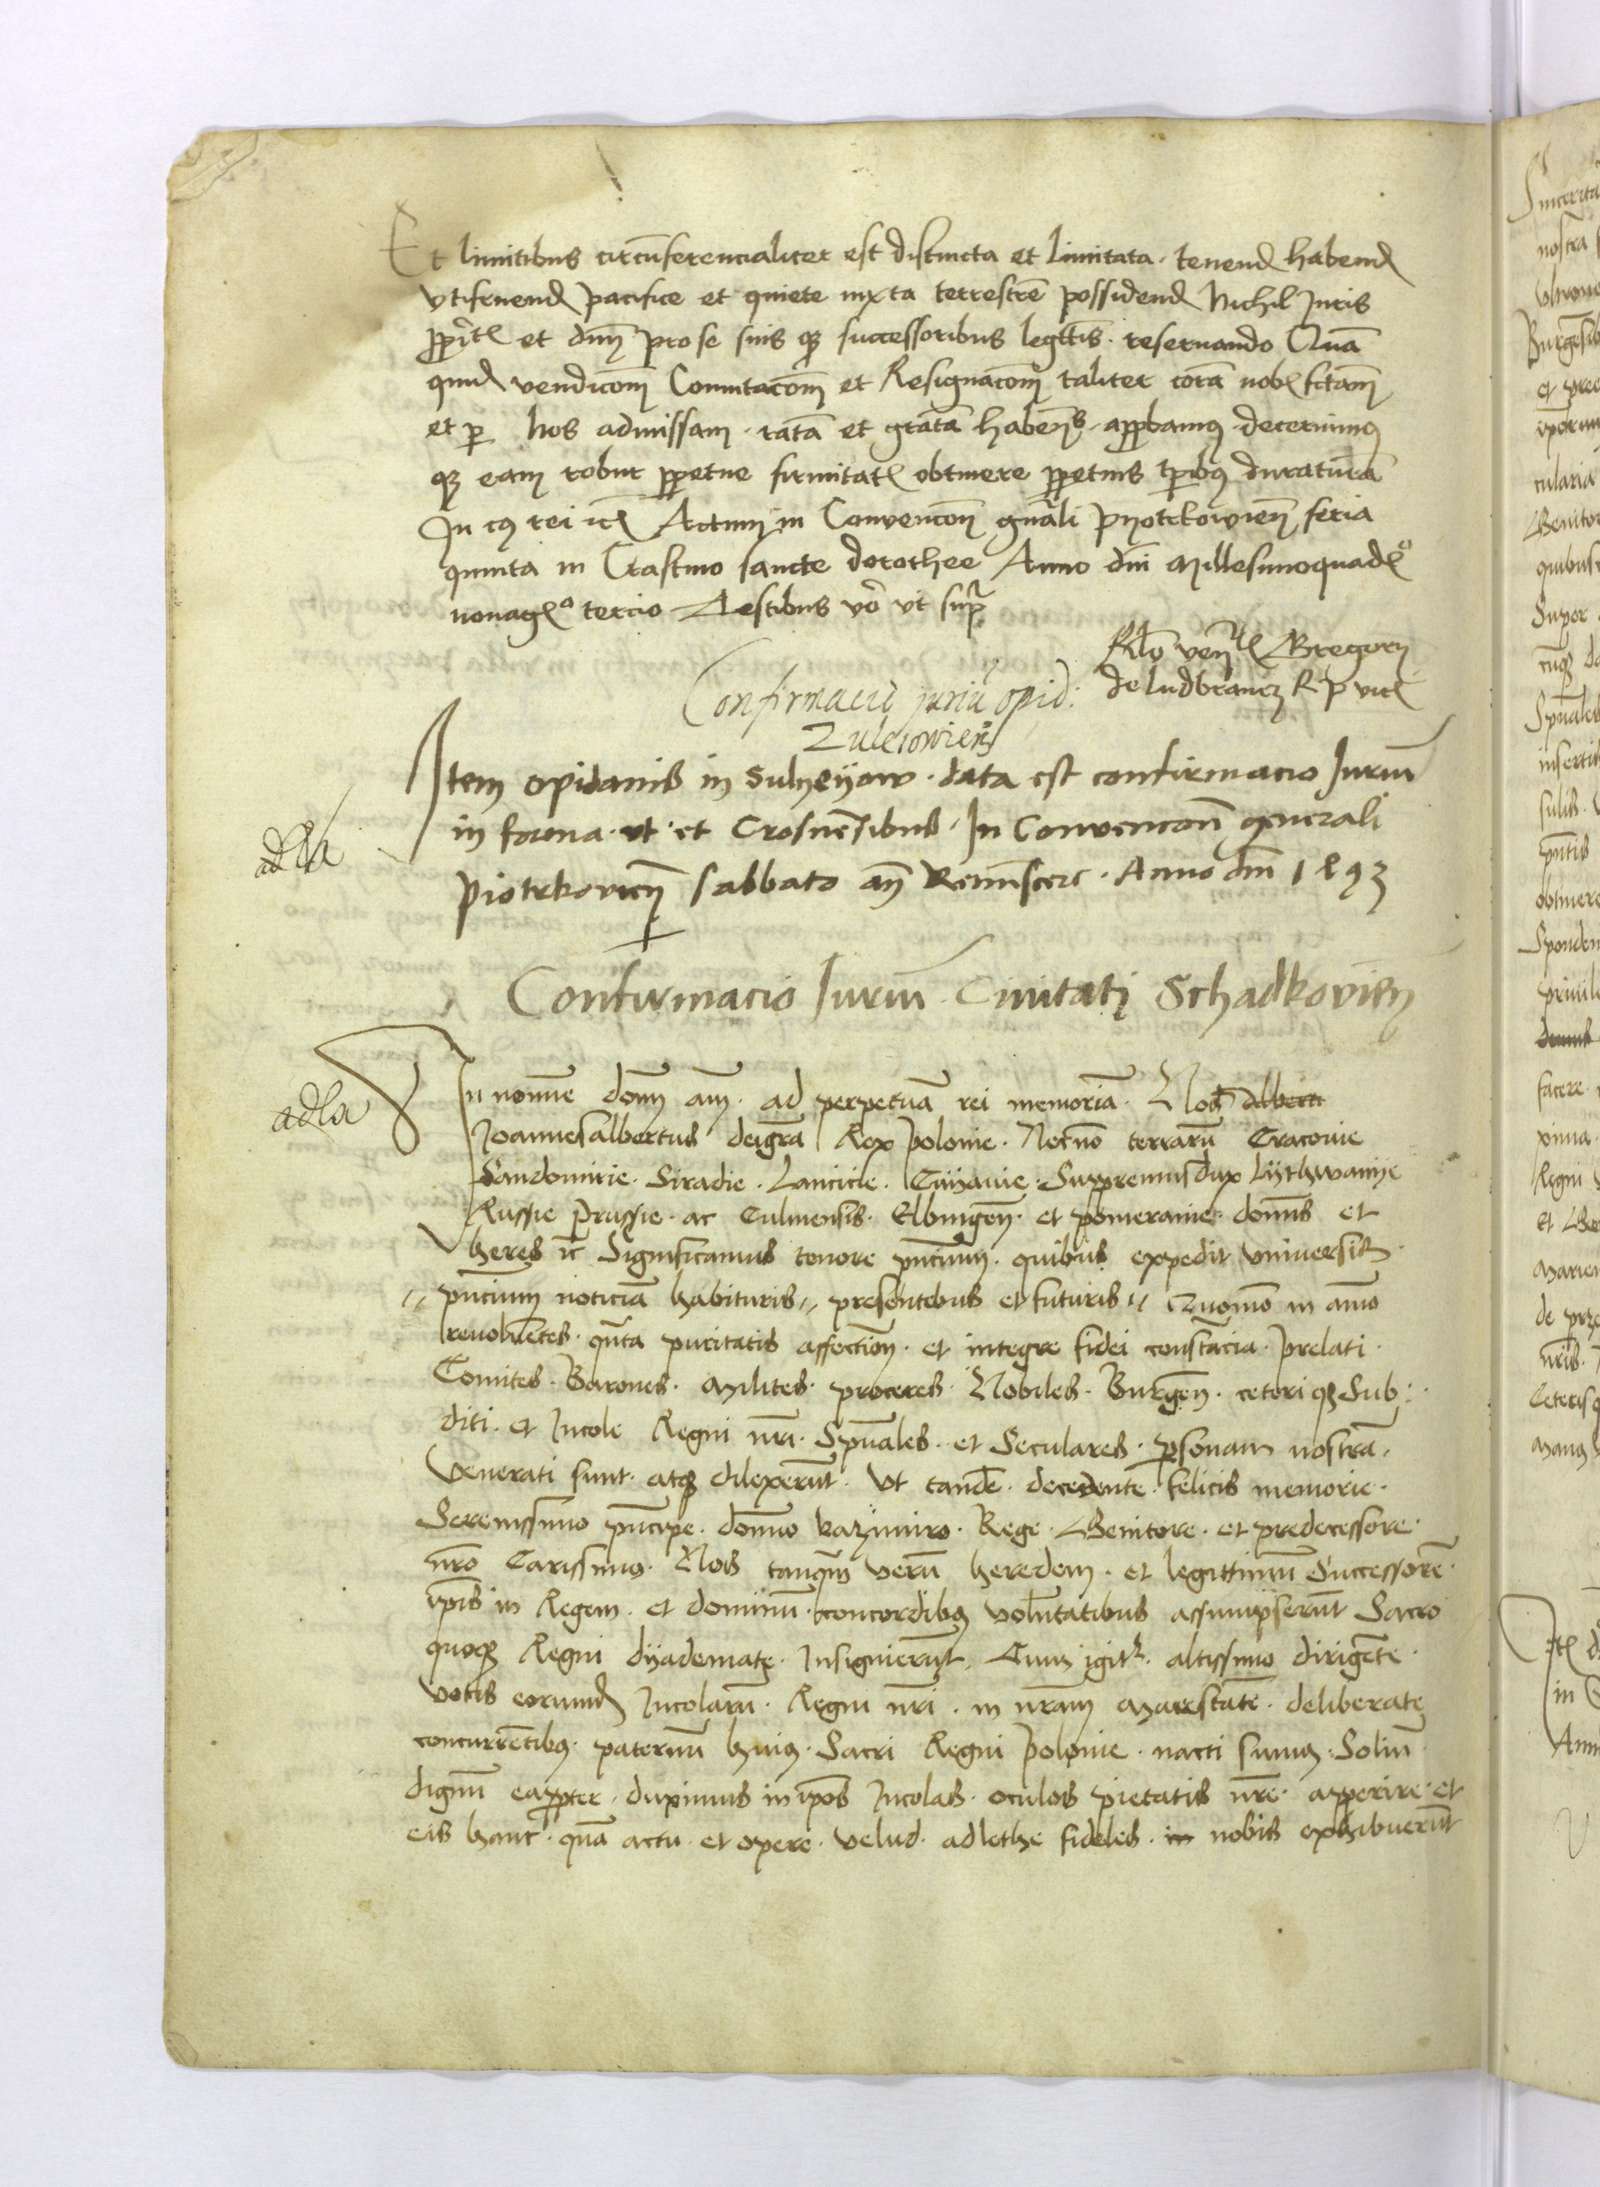 Et limitibus circūferencialiter est distincta et limitata. tenend habend
vtifruend pacifice et quiete iuxta terrestrē possidend Nichil Juris
et dnÿ pro se suis qz successoribus legttīs. reseruando Quā
quid vendicoīm Comutacoīm et Resignacoīm taliter corā nob fctam
et p Nos admissam. ratā et grātā habens. approbamq decernimq
qz eam robur ppetue firmitat obtinere ppetuis tpibq duraturā
In cq rei Actum in Convencoē gnāli pyotrkowien feria
quinta in Crastino sancte dorothee Anno dnī Millesimoquad
nonag tercio Testibus vo vt supra
Rlo ven Gregory
de ludbrancz R p vic
Confirmacio juriū opid:
Zuleiowien
Item opidanis in Sulyeyow. data est confirmacio Jurium
in forma. vt. et Crosnensibus. In Convencōne generali
ad la
piotrkovien sabbato an Reminiscere. Anno dnī 1493
Confirmacio Jurium Ciuitati Schadkovien
In nomine domī am. ad perpetuā rei memoriā. Nos albert
ad la
Joannesalbertus deigrā Rex polonie. Necnō terrarū Cracouie
Sandomirie. Siradie. Lancicie. Cuiauie. Suppremusdux Lythwanye
Russie prussie. ac Culmensis. Elbingen. et pomeranie. domīs et
heres ic Significamus tenore pncium. quibus expedit vniuersis.
pncium noticiā habituris presentibus et futuris Quomō in aīmo
reuoluētes. qnta puritatis affectiōn. et integre fidei constācia. prelati.
Comites. Barones. Milites. proceres. Nobiles. Burgen. ceteri qz Sub:
diti. et Incole Regni nrī. Spuales. et Seculares. psonam nostrā.
Venerati sunt. atqz dilexerūt. Vt tandē. decedente. felicis memorie.
Serenissimo pncipe. domno kazimiro. Rege. Genitore. et predecessore.
nrō Carissimo. Nos tanqm verū heredem. et legittimū Successorē.
ipīs in Regem. et dominū. concordibq volūtatibus assumpserūt Sacro
quoqz Regni dyademate. Insignierūt. Cum igitr. altissimo dirigēte.
votis eorumd Incolarū. Regni nrī. in nrām Maiestatē. deliberate
concurrētibq. paternū huiq. Sacri Regni polonie. nacti sumq. Soliū.
dignū eapropter. duximus in ipōs Incolas. oculos pietatis nrē. apperire. et
eis hanc. quā actu. et opere. velud. adlethe fideles. in nobis exhibuerūt